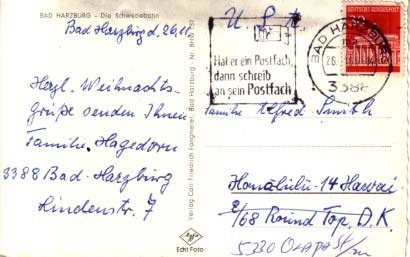 BAD HARZBURG - Die Schwebebahn
Bad Harzburg d, 26.11.
Herzl. Weihnachts-
grüße senden Ihnen
Familie Hagedorn
3388 Bad-Harzburg
Hindenstr. 7
Verlag Carl Friedrich Fangmeier, Bad Harzburg - Nr. Brhb 757
Agfa
Echt Foto
U. S. A.
Hat er ein Postfach,
dann schreib
an sein Postfach
BAD HARZBURG
26.11.
3388
DEUTSCHE BUNDESPOST
Familie Alfred Smith
Honolulu-14 Hawai
E/68 Round Top. D.K.
5330 Oʟᴀᴘᴀ St